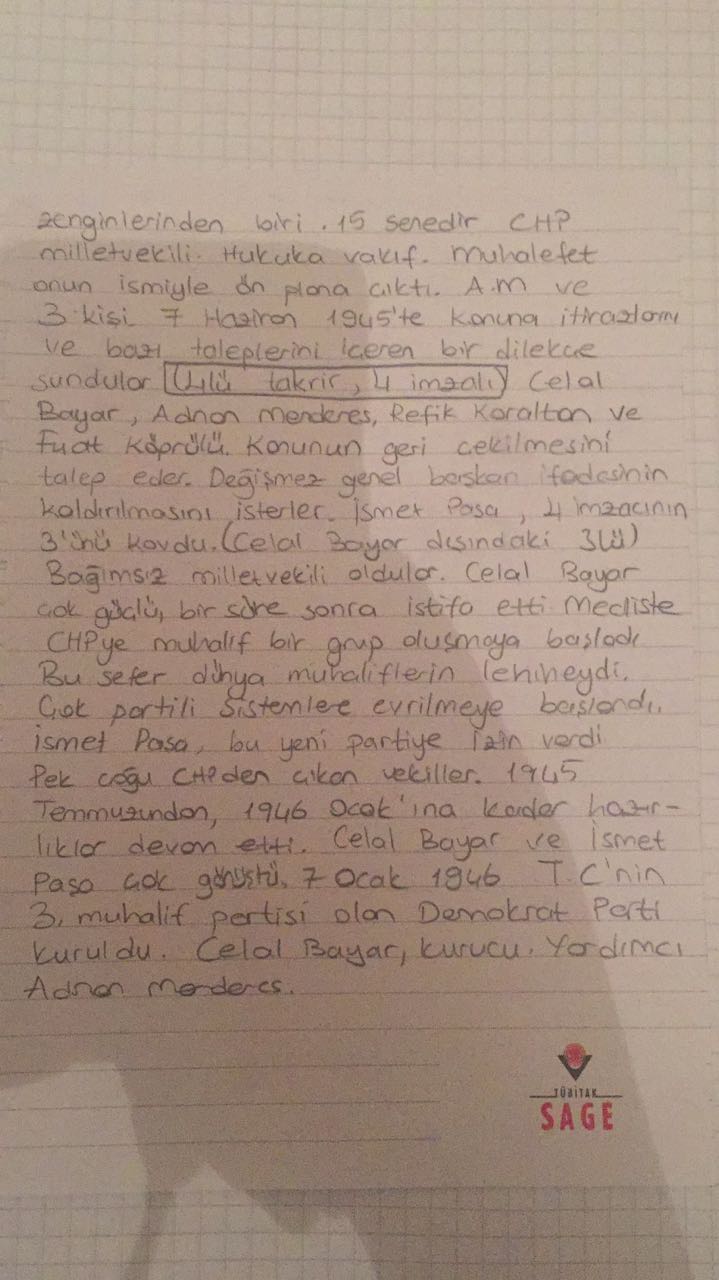 zenginlerinden biri. 15 senedir CHP
milletvekili. Hukuka vakıf. Muhalefet
onun ismiyle ön plana çıktı. A.M ve
3 kişi 7 Haziran 1945'te konuna itirazlarını
ve bazı taleplerini içeren bir dilekçe
sundular (4lü takrir, 4 imzalı) Celal
Bayar, Adnan Menderes, Refik Koraltan ve
Fuat Köprülü. Konunun geri çekilmesini
talep eder. Değişmez genel başkan ifadesinin
kaldırılmasını isterler. İsmet Paşa, 4 imzacının
3'ünü kovdu. (Celal Bayar dışındaki 3lü)
Bağımsız milletvekili oldular. Celal Bayar
çok güçlü, bir süre sonra istifa etti Mecliste
CHPye muhalif bir grup oluşmaya başladı
Bu sefer dünya muhaliflerin lehineydi.
Çok partili sistemlere evrilmeye başlandı.
İsmet Paşa, bu yeni partiye izin verdi
Pek çoğu CHPden çıkan vekiller. 1945
Temmuzundan, 1946 Ocak'ına kadar hazır-
lıklar devam etti. Celal Bayar ve İsmet
Paşa çok görüştü. 7 Ocak 1946 T.C'nin
3. muhalif partisi olan Demokrat Parti
kuruldu. Celal Bayar, kurucu. Yardımcı
Adnan Menderes.
TÜBİTAK
SAGE